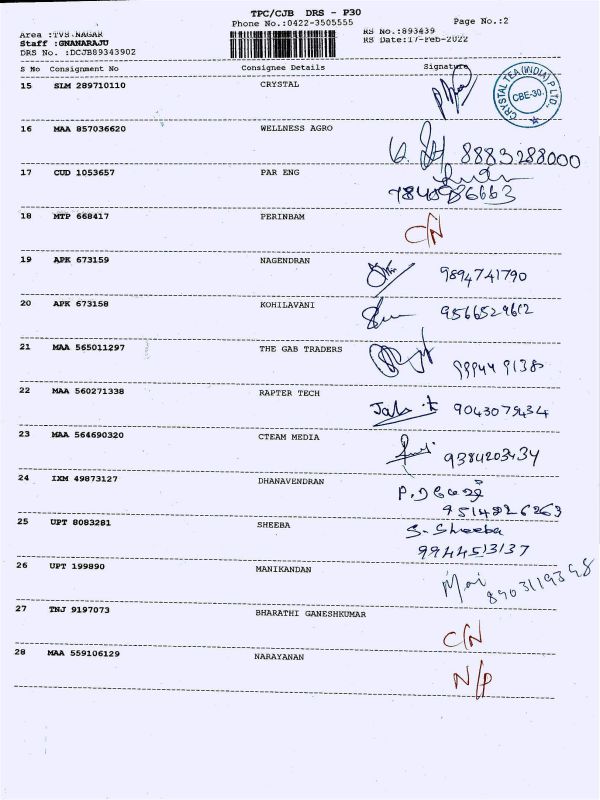 TPC/CJB DRS - P30
Phone No.:0422-3505555 Page No.:2
Area :TVS NAGAR RS No.:893439
Staff :GNANARAJU RS Date:17-Feb-2022
DRS No. :DCJB89343902
S No Consignment No Consignee Details Signature
15 SLM 289710110 CRYSTAL
CRYSTAL TEA (INDIA) P LTD.
CBE-30.
16 MAA 857036620 WELLNESS AGRO
8883288000
17 CUD 1053657 PAR ENG
7848986663
18 MTP 668417 PERINBAM
C/N
19 APK 673159 NAGENDRAN
9894741790
20 APK 673158 KOHILAVANI
9566529612
21 MAA 565011297 THE GAB TRADERS
22 MAA 560271338 RAPTER TECH
23 MAA 564690320 CTEAM MEDIA
9384203434
24 IXM 49873127 DHANAVENDRAN
25 UPT 8083281 SHEEBA
S. Sheeba
9944513137
26 UPT 199890 MANIKANDAN
27 TNJ 9197073 BHARATHI GANESHKUMAR
C/N
28 MAA 559106129 NARAYANAN
N/P